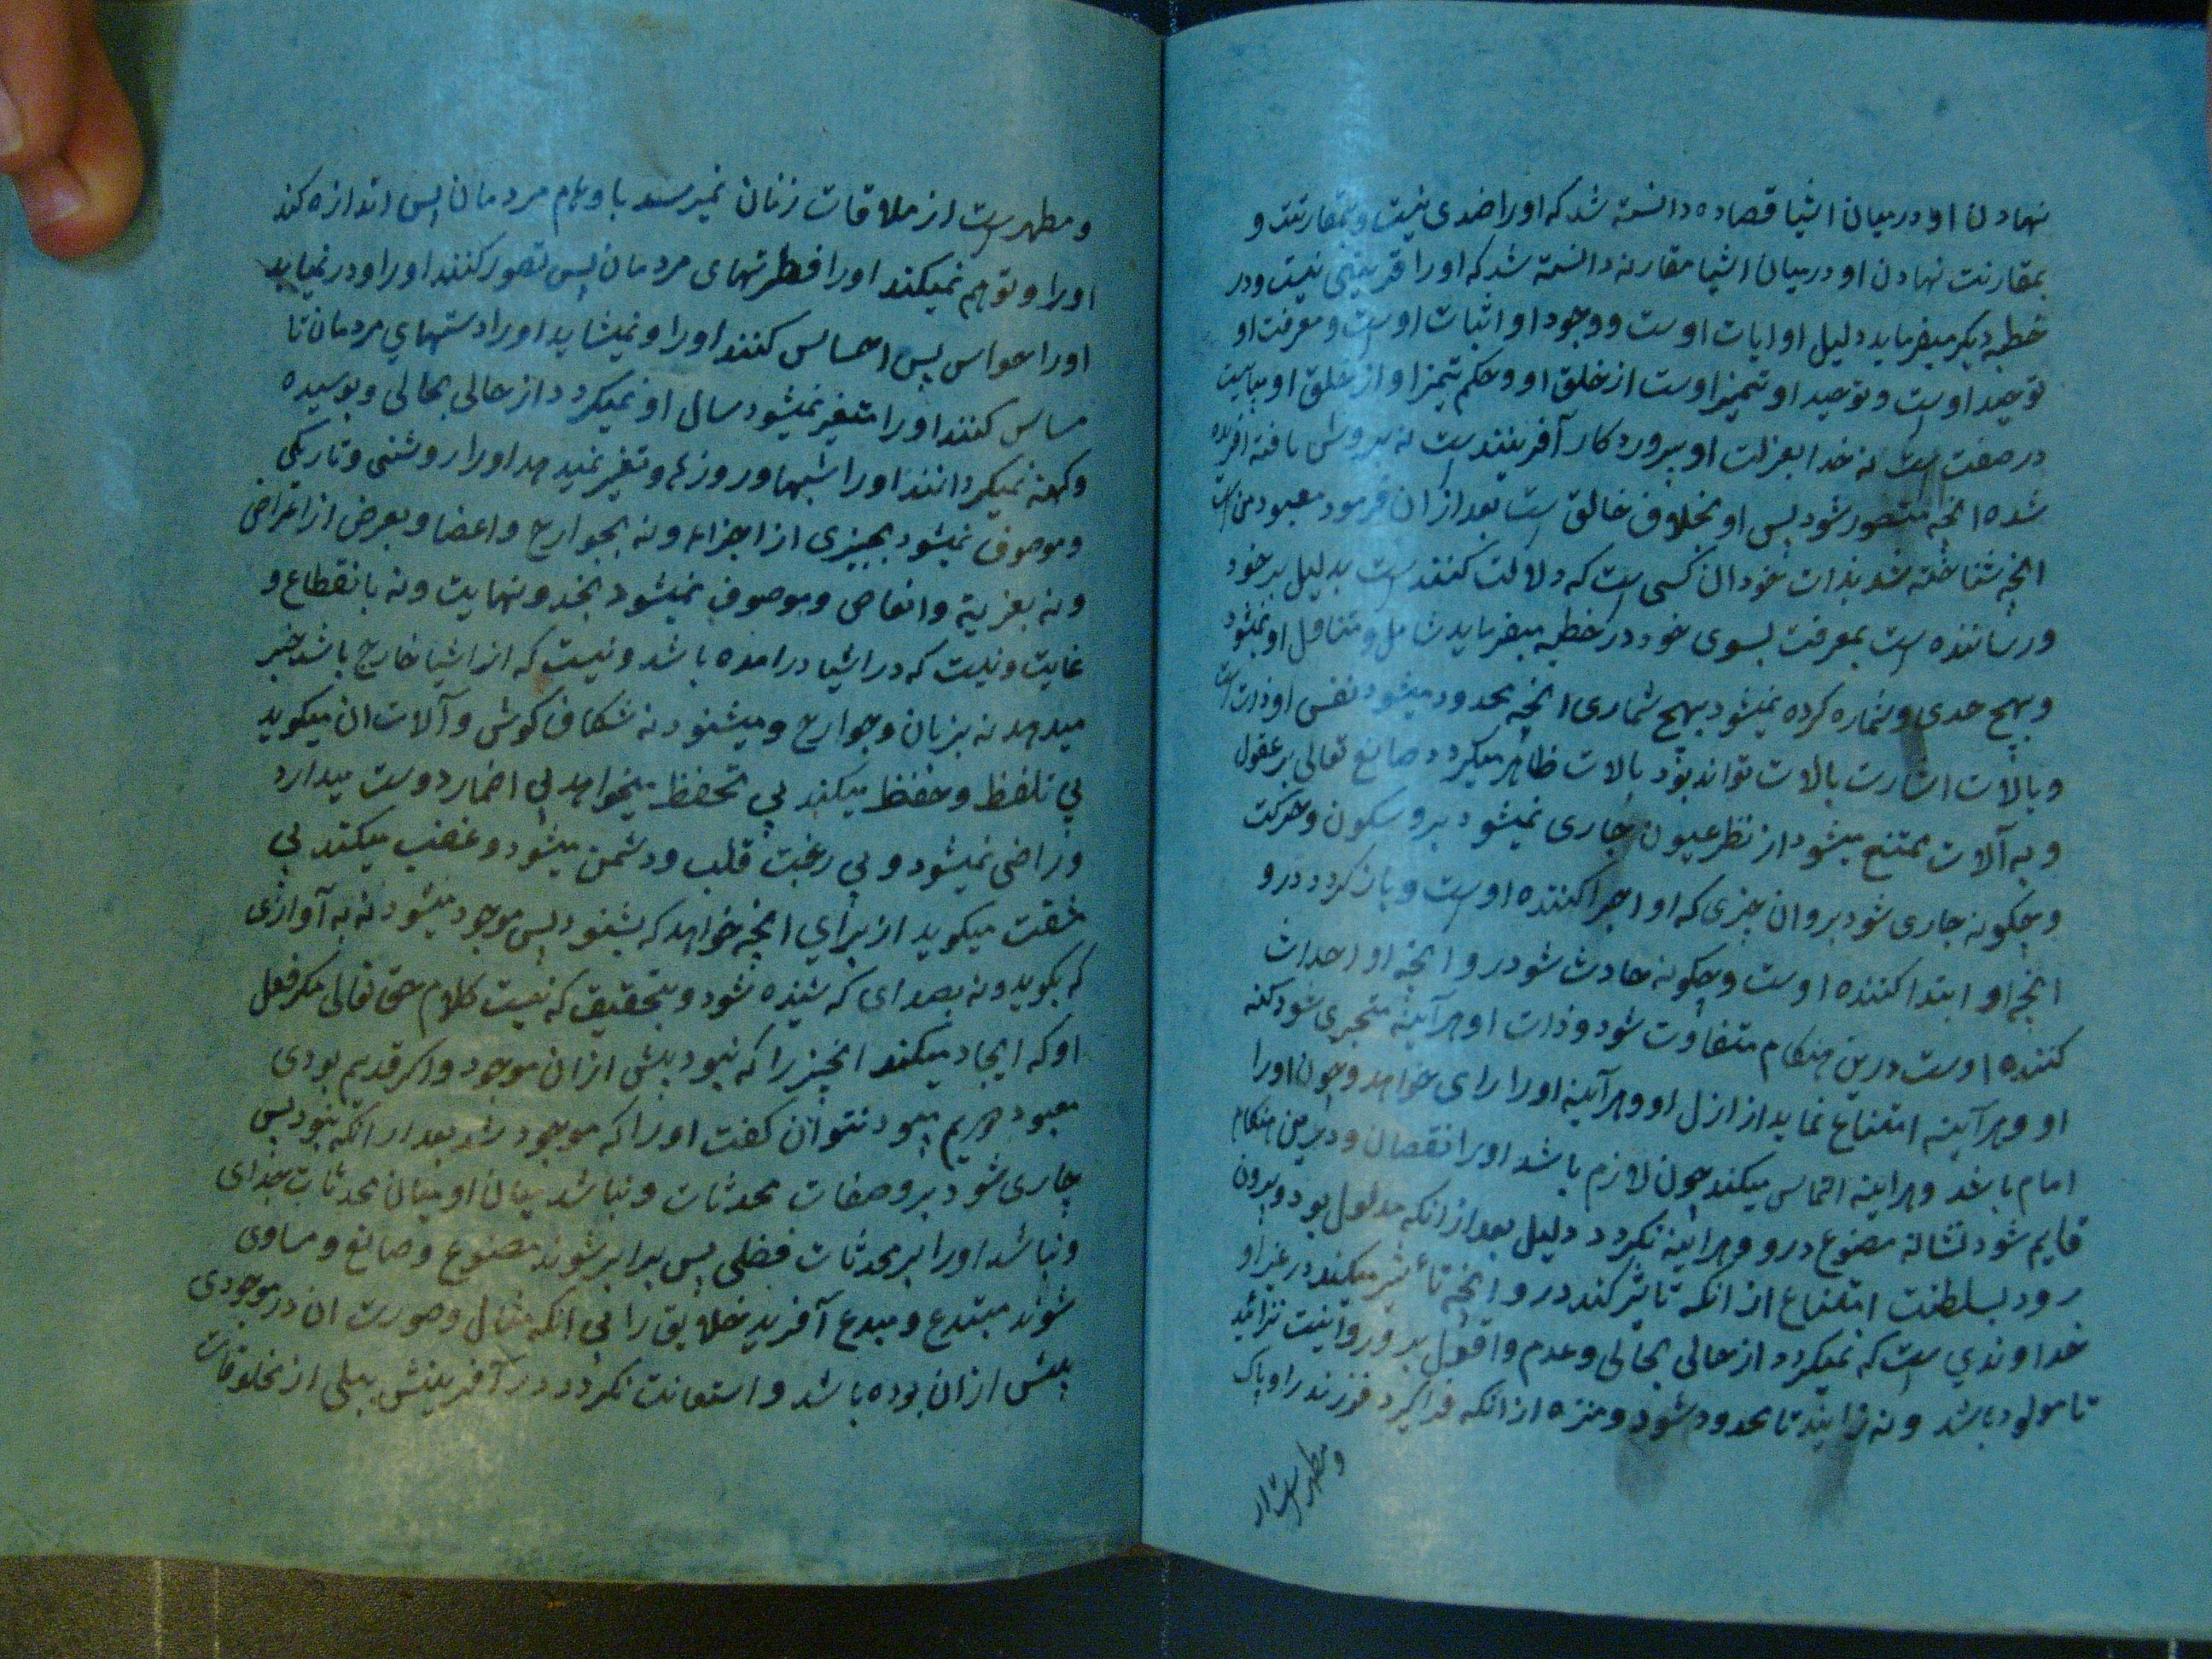 نهادن او درمیان اشیا قصاده دانسته شد که اورا ضدی نیست و بمقارنت و
بمقارنت نهادن او درمیان اشیا مقارنه دانسته شد که اورا قرینی نیست ودر
خطبه دیکر میفرماید دلیل او ایات اوست ووجود او اثبات اوست ومعرفت او
توحید اوست وتوحید او تمیز اوست از خلق او وحکم تمیز او از خلق او
در صفت است نه خدا بعزلت او پروردکار آفریننده ست نه پرورش یافته افریده
شده انچه متصور شود پس او بخلاف خالق ست بعد ازان فرمود معبود من است
انچه شناخته شد بذات خود ان کسی ست که دلالت کننده ست بدلیل بر خود
ورساننده ست بمعرفت بسوی خود در خطبه میفرماید شامل او نمیشود
وبهیچ حدی وشماره کرده نمیشود بهیچ شماری انچه محدود میشود نفس او ذات است
وبالات اشارت بالات تواند بود بالات ظاهر میکردد صانع تعالی بر عقول
وبه آلات ممتنع میشود از نظر عیون جاری نمیشود برو سکون وحرکت
وچکونه جاری شود بروان چیزی که او اجرا کننده اوست وباز کردد درو
انچه او ابتدا کننده اوست وچکونه حادث شود درو انچه او احداث
کننده اوست درین هنکام متفاوت شود وذات او هرآینه متجزی شود کنه
او وهرآینه امتناع نماید از ازل او وهرآینه اورا رای خواهد وچون اورا
امام باشد وهراینه التماس میکند چون لازم باشد اورا نقصان ودرین هنکام
قایم شود نشانه مصنوع درو وهراینه نکردد دلیل بعد از انکه مدلول بود وبیرون
رود بسلطنت امتناع از انکه تاثیر کند درو انچه تاثیر میکند در غیر او
خداوندی ست که نمیکردد از حالی بحالی وعدم وافول برو روا نیست نزائید
تا مولود باشد ونه زایند تا محدود شود ومنزه از انکه فراکیرد فرزند را وپاک
ومطهر است از
ومطهر ست از ملاقات زنان نمیرسد باوهام مردمان پس اندازه کند
اورا وتوهم نمیکند اورا فطرتهای مردمان پس تصور کنند اورا ودر نمیابد
اورا حواس پس احساس کنند اورا ونمیشاید اورا دستهای مردمان تا
مساس کنند اورا متغیر نمیشود سال او نمیکردد از حالی بحالی وبوسیده
وکهنه نمیکردانند اورا شبها وروزها وتغیر نمیدهد اورا روشنی وتاریکی
وموصوف نمیشود بچیزی از اجزاء ونه بجوارح واعضا وبعرض از اعراض
ونه بغریة وانعاص وموصوف نمیشود بحد ونهایت ونه بانقطاع و
غایت ونیست که در اشیا درامده باشد ونیست که از اشیا خارج باشد خبر
میدهد نه بزبان وجوارح ومیشنود نه شکاف کوش وآلات ان میکوید
بی تلفظ وحفظ میکند بی تحفظ میخواهد بی اضمار دوست میدارد
وراضی نمیشود وبی رغبت قلب ودشمن میشود وغضب میکند بی
مشقت میکوید از برای انچه خواهد که بشنود پس موجود میشود نه به آوازی
که بکوید ونه بصدای که شنیده شود وبتحقیق که نیست کلام حق تعالی مکر فعل
او که ایجاد میکند انچیز را که نبود پیش ازان موجود واکر قدیم بودی
معبود نتوان کفت اورا که موجود شد بعد از انکه نبود پس
جاری شود برو صفات محدثات ونباشد میان او میان محدثات جدای
ونباشد اورا بر محدثات فضلی پس برابر شوند مصنوع وصانع ومساوی
شوند مبتدع ومبدع آفرید خلایق را بی انکه مثال وصورت ان در موجودی
پیش ازان بوده باشد واستعانت نکردد در آفرینش از مخلوقات